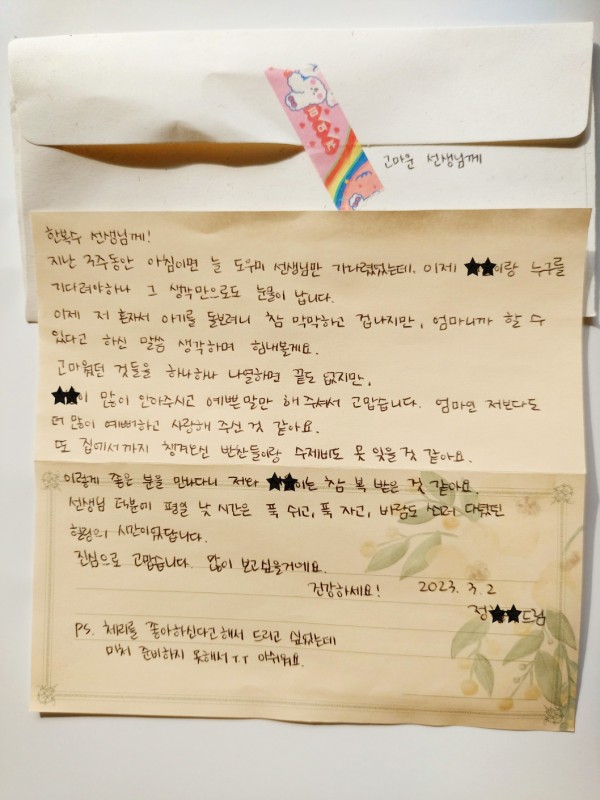 고마운 선생님께
한복수 선생님께!
지난 3주동안 아침이면 늘 도우미 선생님만 기다렸었는데. 이제 ★★이랑 누구를
기다려야하나 그 생각만으로도 눈물이 납니다.
이제 저 혼자서 아기를 돌보려니 참 막막하고 겁나지만, 엄마니까 할 수
있다고 하신 말씀 생각하며 힘내볼게요.
고마웠던 것들을 하나하나 나열하면 끝도 없지만,
★★이 많이 안아주시고 예쁜말만 해주셔서 고맙습니다. 엄마인 저보다도
더 많이 예뻐하고 사랑해 주신 것 같아요.
또 집에서까지 챙겨오신 반찬들이랑 수제비도 못 잊을 것 같아요.
이렇게 좋은 분을 만나다니 저랑 ★★이는 참 복 받은 것 같아요.
선생님 덕분에 평일 낮 시간은 푹 쉬고, 푹 자고, 바람도 쐬러 다녔던
힐링의 시간이었답니다.
진심으로 고맙습니다. 많이 보고싶을거에요.
건강하세요! 2023. 3. 2
정★★드림
PS. 체리를 좋아하신다고해서 드리고 싶었는데
미처 준비하지 못해서ㅜㅜ 아쉬워요.